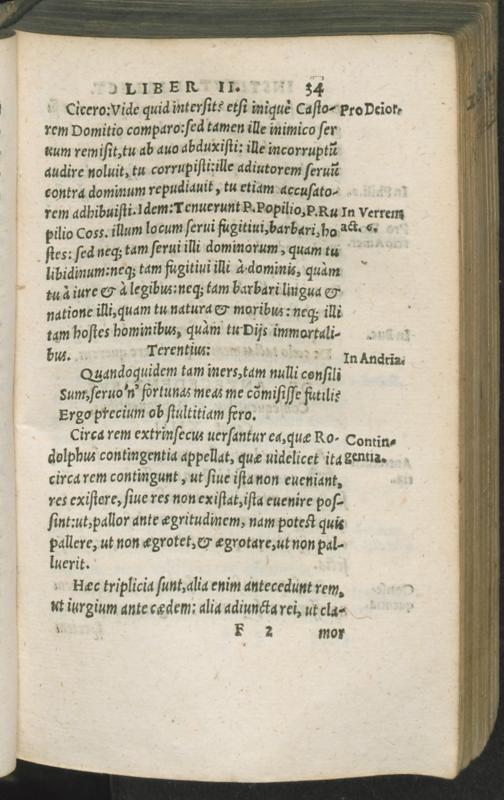 LIBER II. 34
Cicero: Vide quid intersit: etsi iniquè Casto- Pro Deiot.
rem Domitio comparo: sed tamen ille inimico ser
uum remisit, tu ab auo abduxisti: ille incorruptũ
audire noluit, tu corrupisti: ille adiutorem seruũ
contra dominum repudiauit, tu etiam accusato-
rem adhibuisti. Idem: Tenuerunt P. Popilio, P. Ru In Verrem
pilio Coss. illum locum serui fugitiui, barbari, ho act. 6.
stes: sed neq; tam serui illi dominorum, quam tu
libidinum: neq; tam fugitiui illi à dominis, quàm
tu à iure & à legibus: neq; tam barbari lingua &
natione illi, quam tu natura & moribus: neq; illi
tam hostes hominibus, quàm tu Dijs immortali-
bus. Terentius: In Andria.
Quandoquidem tam iners, tam nulli consili
Sum, seruo'n' fortunas meas me cõmisisse futilis
Ergo precium ob stultitiam fero.
Circa rem extrinsecus uersantur ea, quæ Ro- Contin-
dolphus contingentia appellat, quæ uidelicet ita gentia.
circa rem contingunt, ut siue ista non eueniant,
res existere, siue res non existat, ista euenire pos-
sint: ut, pallor ante ægritudinem, nam potest quis
pallere, ut non ægrotet, & ægrotare, ut non pal-
luerit.
Hæc triplicia sunt, alia enim antecedunt rem,
ut iurgium ante cædem: alia adiuncta rei, ut cla-
F 2 mor